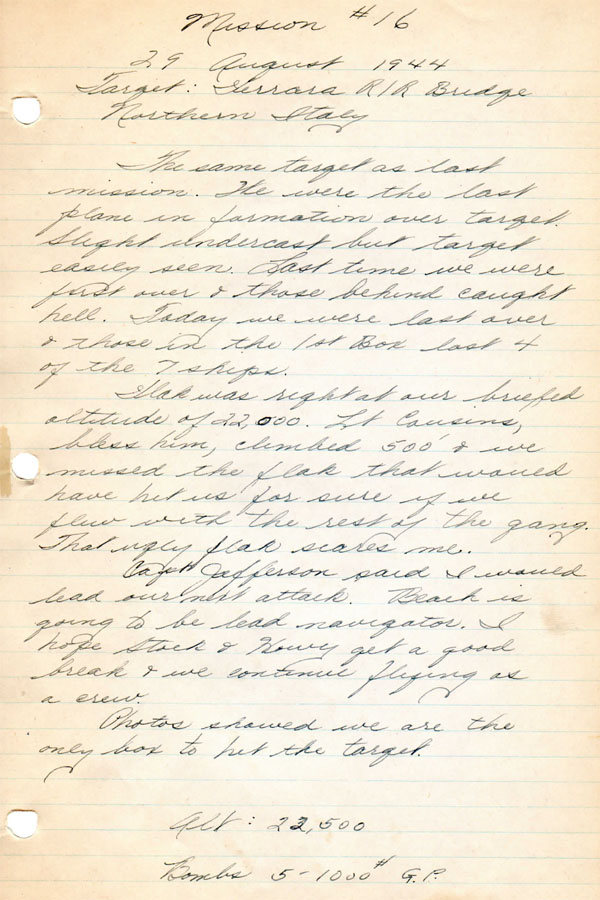 Mission #16
29 August 1944
Target: Ferrara R/R Bridge
Northern Italy
The same target as last
mission. We were the last
plane in formation over target.
Slight undercast but target
easily seen. Last time we were
first over & those behind caught
hell. Today we were last over
& those in the 1st Box lost 4
of the 7 ships.
Flak was right at our briefed
altitude of 22,000. Lt Cousins,
bless him, climbed 500' & we
missed the flak that would
have hit us for sure if we
flew with the rest of the gang.
That ugly flak scares me.
Capt Jefferson said I would
lead our next attack. Beach is
going to be lead navigator. I
hope Stock & Howy get a good
break & we continue flying as
a crew.
Photos showed we are the
only box to hit the target.
Alt: 22,500
Bombs 5-1000# G.P.